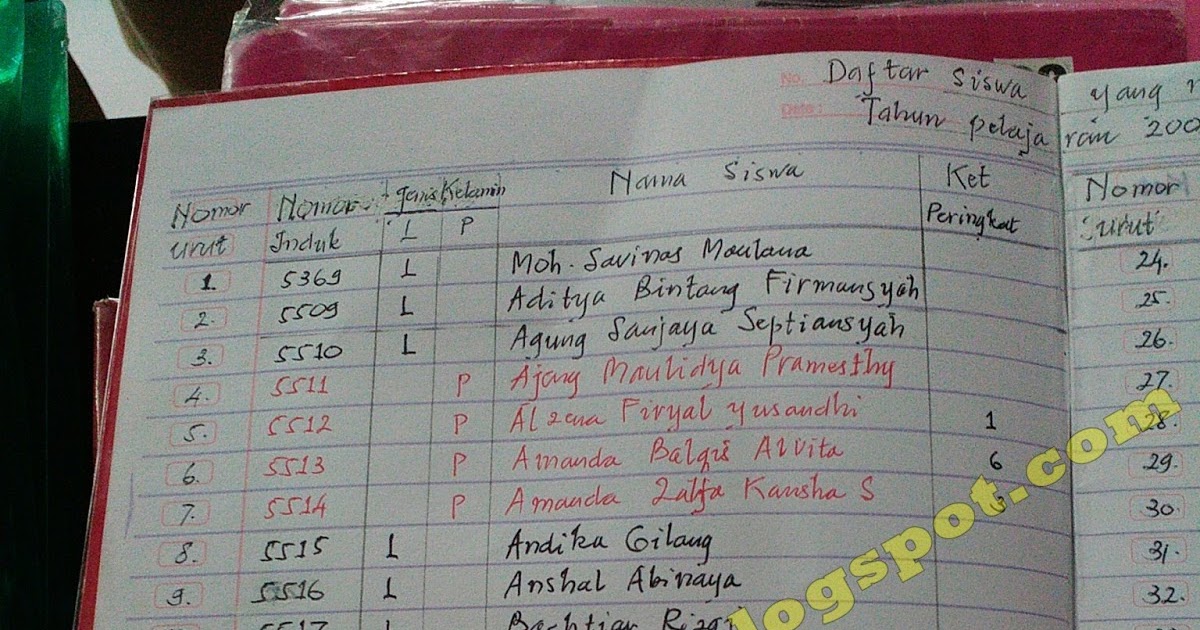 No. Daftar siswa yang
Date: Tahun pelajaran 200
Nomor Nomor jenis Kelamin Nama Siswa Ket Nomor
urut Induk L P Peringkat urut
1. 5369 L Moh. Savinas Maulana 24.
2. 5509 L Aditya Bintang Firmansyah 25.
3. 5510 L Agung Sanjaya Septiansyah 26.
4. 5511 P Ajeng Maulidya Pramesthy 27.
5. 5512 P Alzena Firyal Yusandhi 1 28.
6. 5513 P Amanda Balqis Alvita 6 29.
7. 5514 P Amanda Zalfa Kansha S 3 30.
8. 5515 L Andika Gilang 31.
9. 5516 L Anshal Abinaya 32.
5517 L Bachtiar Rizqi
logspot.com